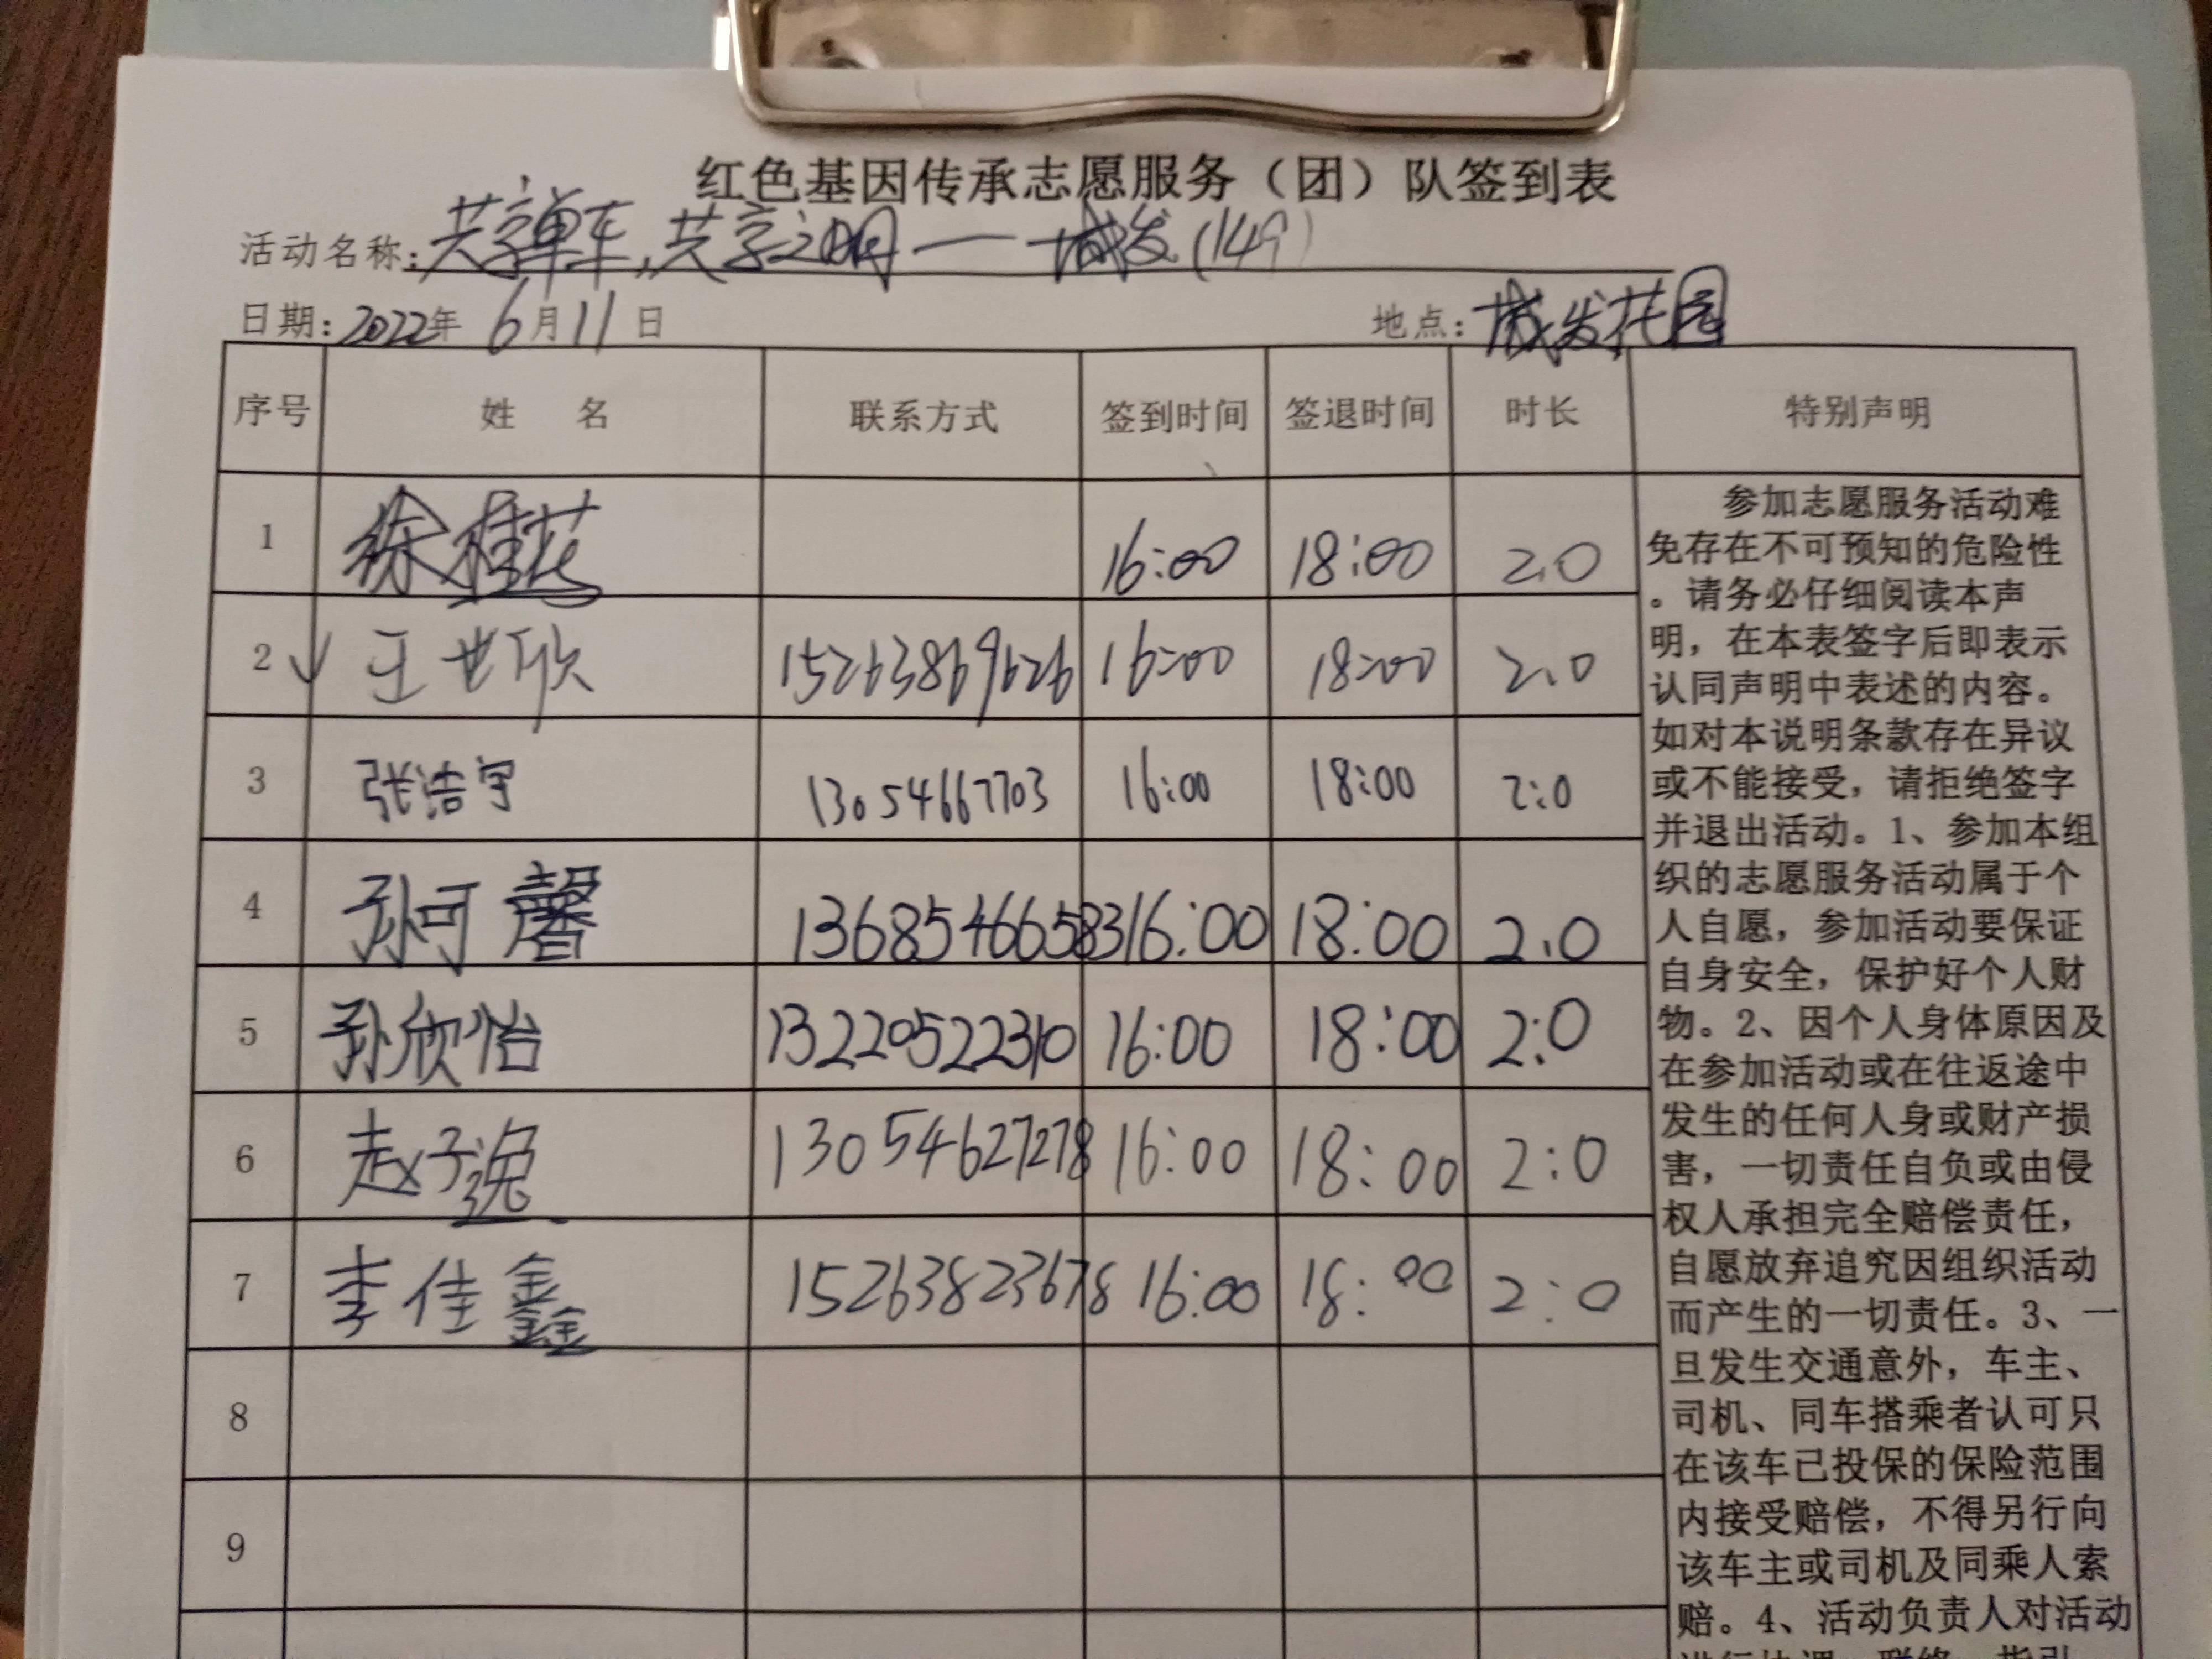 红色基因传承志愿服务（团）队签到表
活动名称：共享单车，共享文明——城发(149)
日期：2022年 6月11日 地点：城发花园
序号 姓 名 联系方式 签到时间 签退时间 时长 特别声明
1 徐桂花 16:00 18:00 2.0
2 王世欣 15263869626 16:00 18:00 2.0
3 张浩宇 13054667703 16:00 18:00 2:0
4 孙可馨 13685466583 16:00 18:00 2.0
5 孙欣怡 13220522310 16:00 18:00 2:0
6 赵子逸 13054627278 16:00 18:00 2:0
7 李佳鑫 15263823678 16:00 18:00 2:0
8
9
参加志愿服务活动难
免存在不可预知的危险性
。请务必仔细阅读本声
明，在本表签字后即表示
认同声明中表述的内容。
如对本说明条款存在异议
或不能接受，请拒绝签字
并退出活动。1、参加本组
织的志愿服务活动属于个
人自愿，参加活动要保证
自身安全，保护好个人财
物。2、因个人身体原因及
在参加活动或在往返途中
发生的任何人身或财产损
害，一切责任自负或由侵
权人承担完全赔偿责任，
自愿放弃追究因组织活动
而产生的一切责任。3、一
旦发生交通意外，车主、
司机、同车搭乘者认可只
在该车已投保的保险范围
内接受赔偿，不得另行向
该车主或司机及同乘人索
赔。4、活动负责人对活动